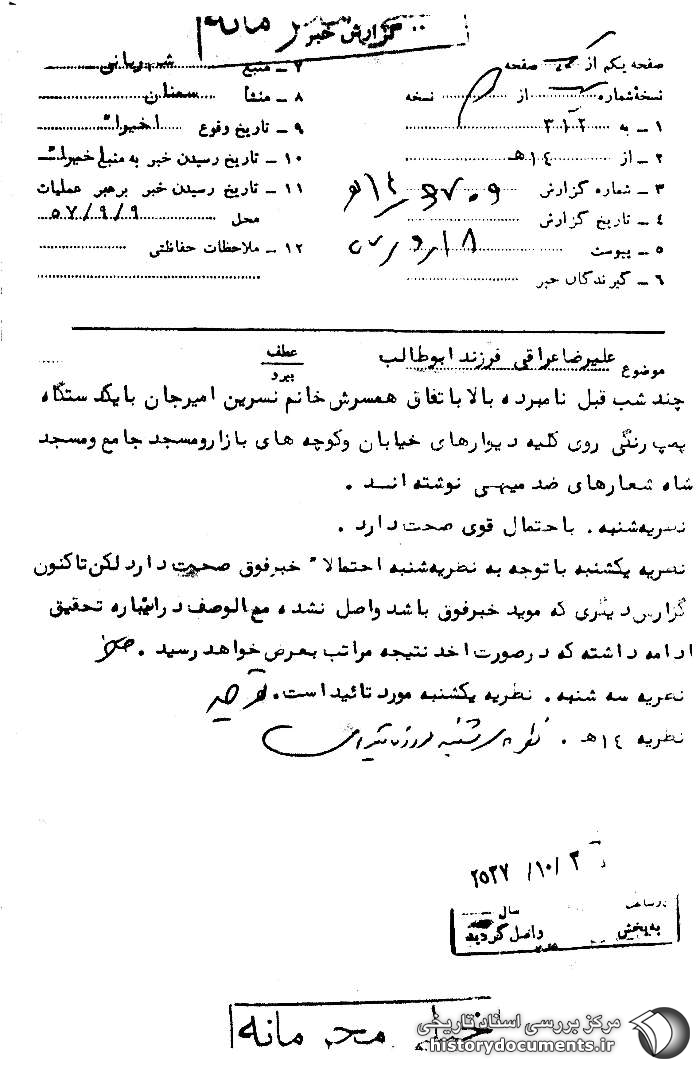 گزارش خبر
صفحه یکم از صفحه
نسخهٔ شماره از نسخه
۱ ـ به ۳۱۲
۲ ـ از ۱۴هـ
۳ ـ شماره گزارش
۴ ـ تاریخ گزارش
۵ ـ پیوست
۶ ـ گیرندگان خبر
۷ ـ منبع
۸ ـ منشأ سمنان
۹ ـ تاریخ وقوع اخیرا
۱۰ ـ تاریخ رسیدن خبر به منبع
۱۱ ـ تاریخ رسیدن خبر برهبر عملیات
محل ۵۷/۹/۹
۱۲ ـ ملاحظات حفاظتی
موضوع علیرضا عراقی فرزند ابوطالب
عطف
پیرو
چند شب قبل نامبرده بالا باتفاق همسرش خانم نسرین امیرجان با یکدستگاه
پمپ رنگی روی کلیه دیوارهای خیابان وکوچه های بازار ومسجد جامع ومسجد
شاه شعارهای ضد میهنی نوشته اند .
نظریه شنبه . باحتمال قوی صحت دارد .
نظریه یکشنبه با توجه به نظریه شنبه احتمالا" خبر فوق صحت دارد لکن تاکنون
گزارش دیگری که موید خبر فوق باشد واصل نشده مع الوصف در اینباره تحقیق
ادامه داشته که در صورت اخذ نتیجه مراتب بعرض خواهد رسید .
نظریه سه شنبه . نظریه یکشنبه مورد تائید است .
نظریه ۱۴هـ .
۲۵۳۷/۱۰/۳
سال
به بخش واصل گردید
خیلی محرمانه
مرکز بررسی اسناد تاریخی
historydocuments.ir